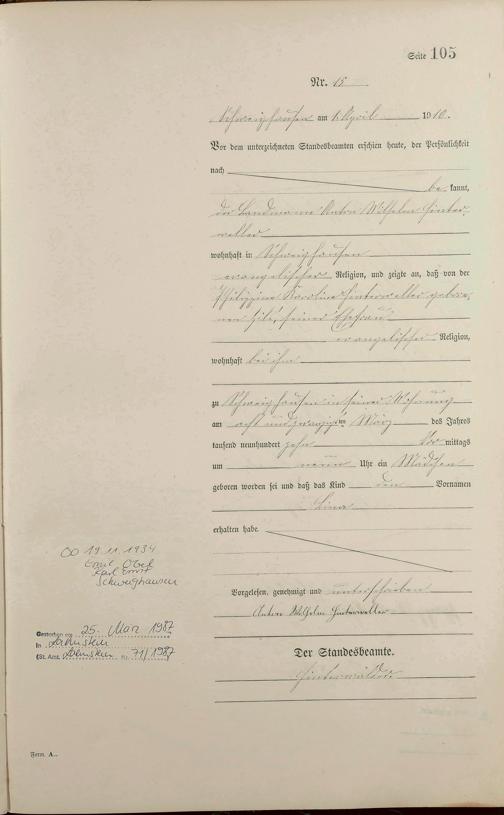 Seite 105
Nr. 15
Schweighausen am 1. April 1910.
Vor dem unterzeichneten Standesbeamten erschien heute, der Persönlichkeit
nach
be kannt,
der Landmann Anton Wilhelm Hinter-
weller
wohnhaft in Schweighausen
evangelischer Religion, und zeigte an, daß von der
Philippine Karoline Hinterweller gebore-
nen seiner Ehefrau
evangelischer Religion,
wohnhaft bei ihm
zu Schweighausen in seiner Wohnung
am acht und zwanzigsten März des Jahres
tausend neunhundert zehn Vor mittags
um neun Uhr ein Mädchen
geboren worden sei und daß das Kind den Vornamen
Lina
erhalten habe.
Vorgelesen, genehmigt und unterschrieben
Anton Wilhelm Hinterweller
Der Standesbeamte.
OO 19.11.1934
Emil
Karl Ernst
Schweighausen
Gestorben am 25. März 1987
in
(St. Amt Nr. 71/1987
Form. A..